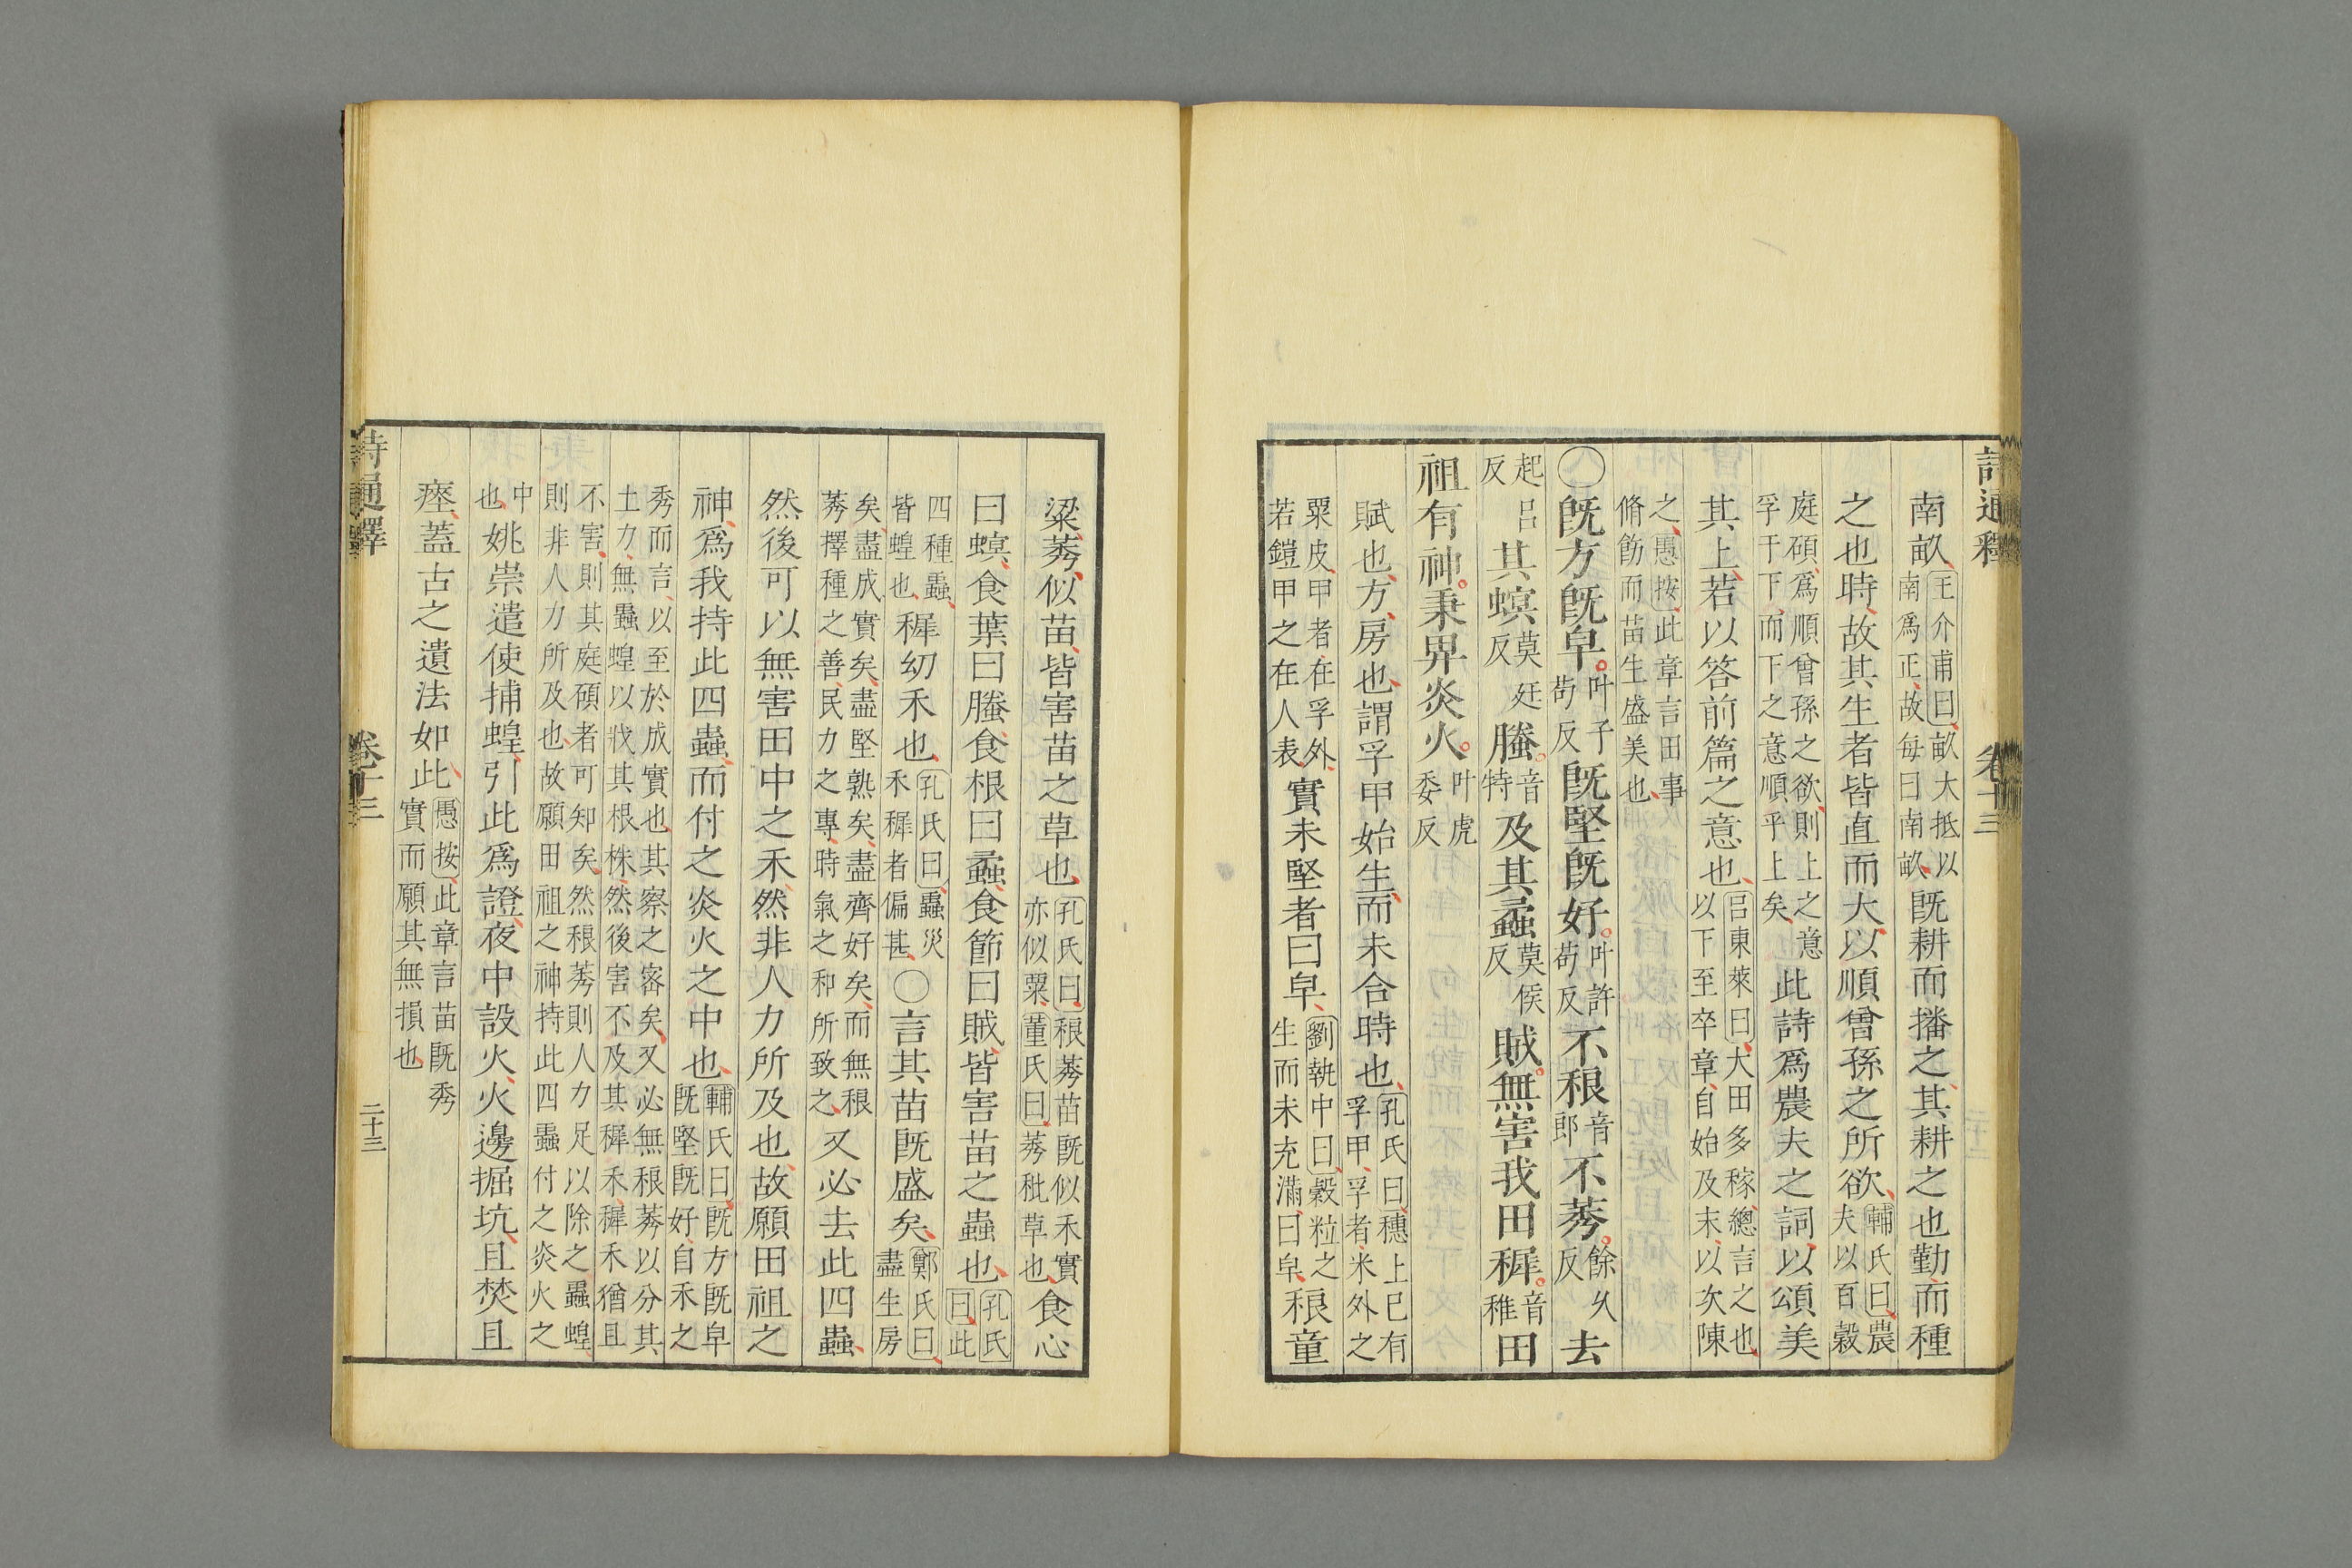 詩通釋 卷十三
南畝王介甫曰畝大抵以南爲正故每曰南畝既耕而播之其耕之也勤而種
之也時故其生者皆直而大以順曾孫之所欲輔氏曰農夫以百穀
庭碩爲順曾孫之欲則上之意孚于下而下之意順乎上矣此詩爲農夫之詞以頌美
其上若以答前篇之意也呂東萊曰大田多稼總言之也以下至卒章自始及末以次陳
之愚按此章言田事脩飭而苗生盛美也
〇既方既皁叶子苟反既堅既好叶許苟反不稂音郎不莠餘久反去
起呂反其螟莫廷反螣音特及其蟊莫侯反賊無害我田穉音稚田
祖有神秉畀炎火叶虎委反
賦也方房也謂孚甲始生而未合時也孔氏曰穗上已有孚甲孚者米外之
粟皮甲者在孚外若鎧甲之在人表實未堅者曰皁劉執中曰穀粒之生而未充滿曰皁稂童
粱莠似苗皆害苗之草也孔氏曰稂莠苗既似禾實亦似粟董氏曰莠秕草也食心
曰螟食葉曰螣食根曰蟊食節曰賊皆害苗之蟲也孔氏曰此
四種蟲皆蝗也穉幼禾也孔氏曰蟲災禾穉者偏甚〇言其苗既盛矣鄭氏曰盡生房
矣盡成實矣盡堅熟矣盡齊好矣而無稂莠擇種之善民力之專時氣之和所致之又必去此四蟲
然後可以無害田中之禾然非人力所及也故願田祖之
神爲我持此四蟲而付之炎火之中也輔氏曰既方既皁既堅既好自禾之
秀而言以至於成實也其察之密矣又必無稂莠以分其土力無蟲蝗以戕其根株然後害不及其穉禾穉禾猶且
不害則其庭碩者可知矣然稂莠則人力足以除之蟲蝗則非人力所及也故願田祖之神持此四蟲付之炎火之
中也姚崇遣使捕蝗引此爲證夜中設火火邊掘坑且焚且
瘞蓋古之遺法如此愚按此章言苗既秀實而願其無損也
詩通釋 卷十三 二十三